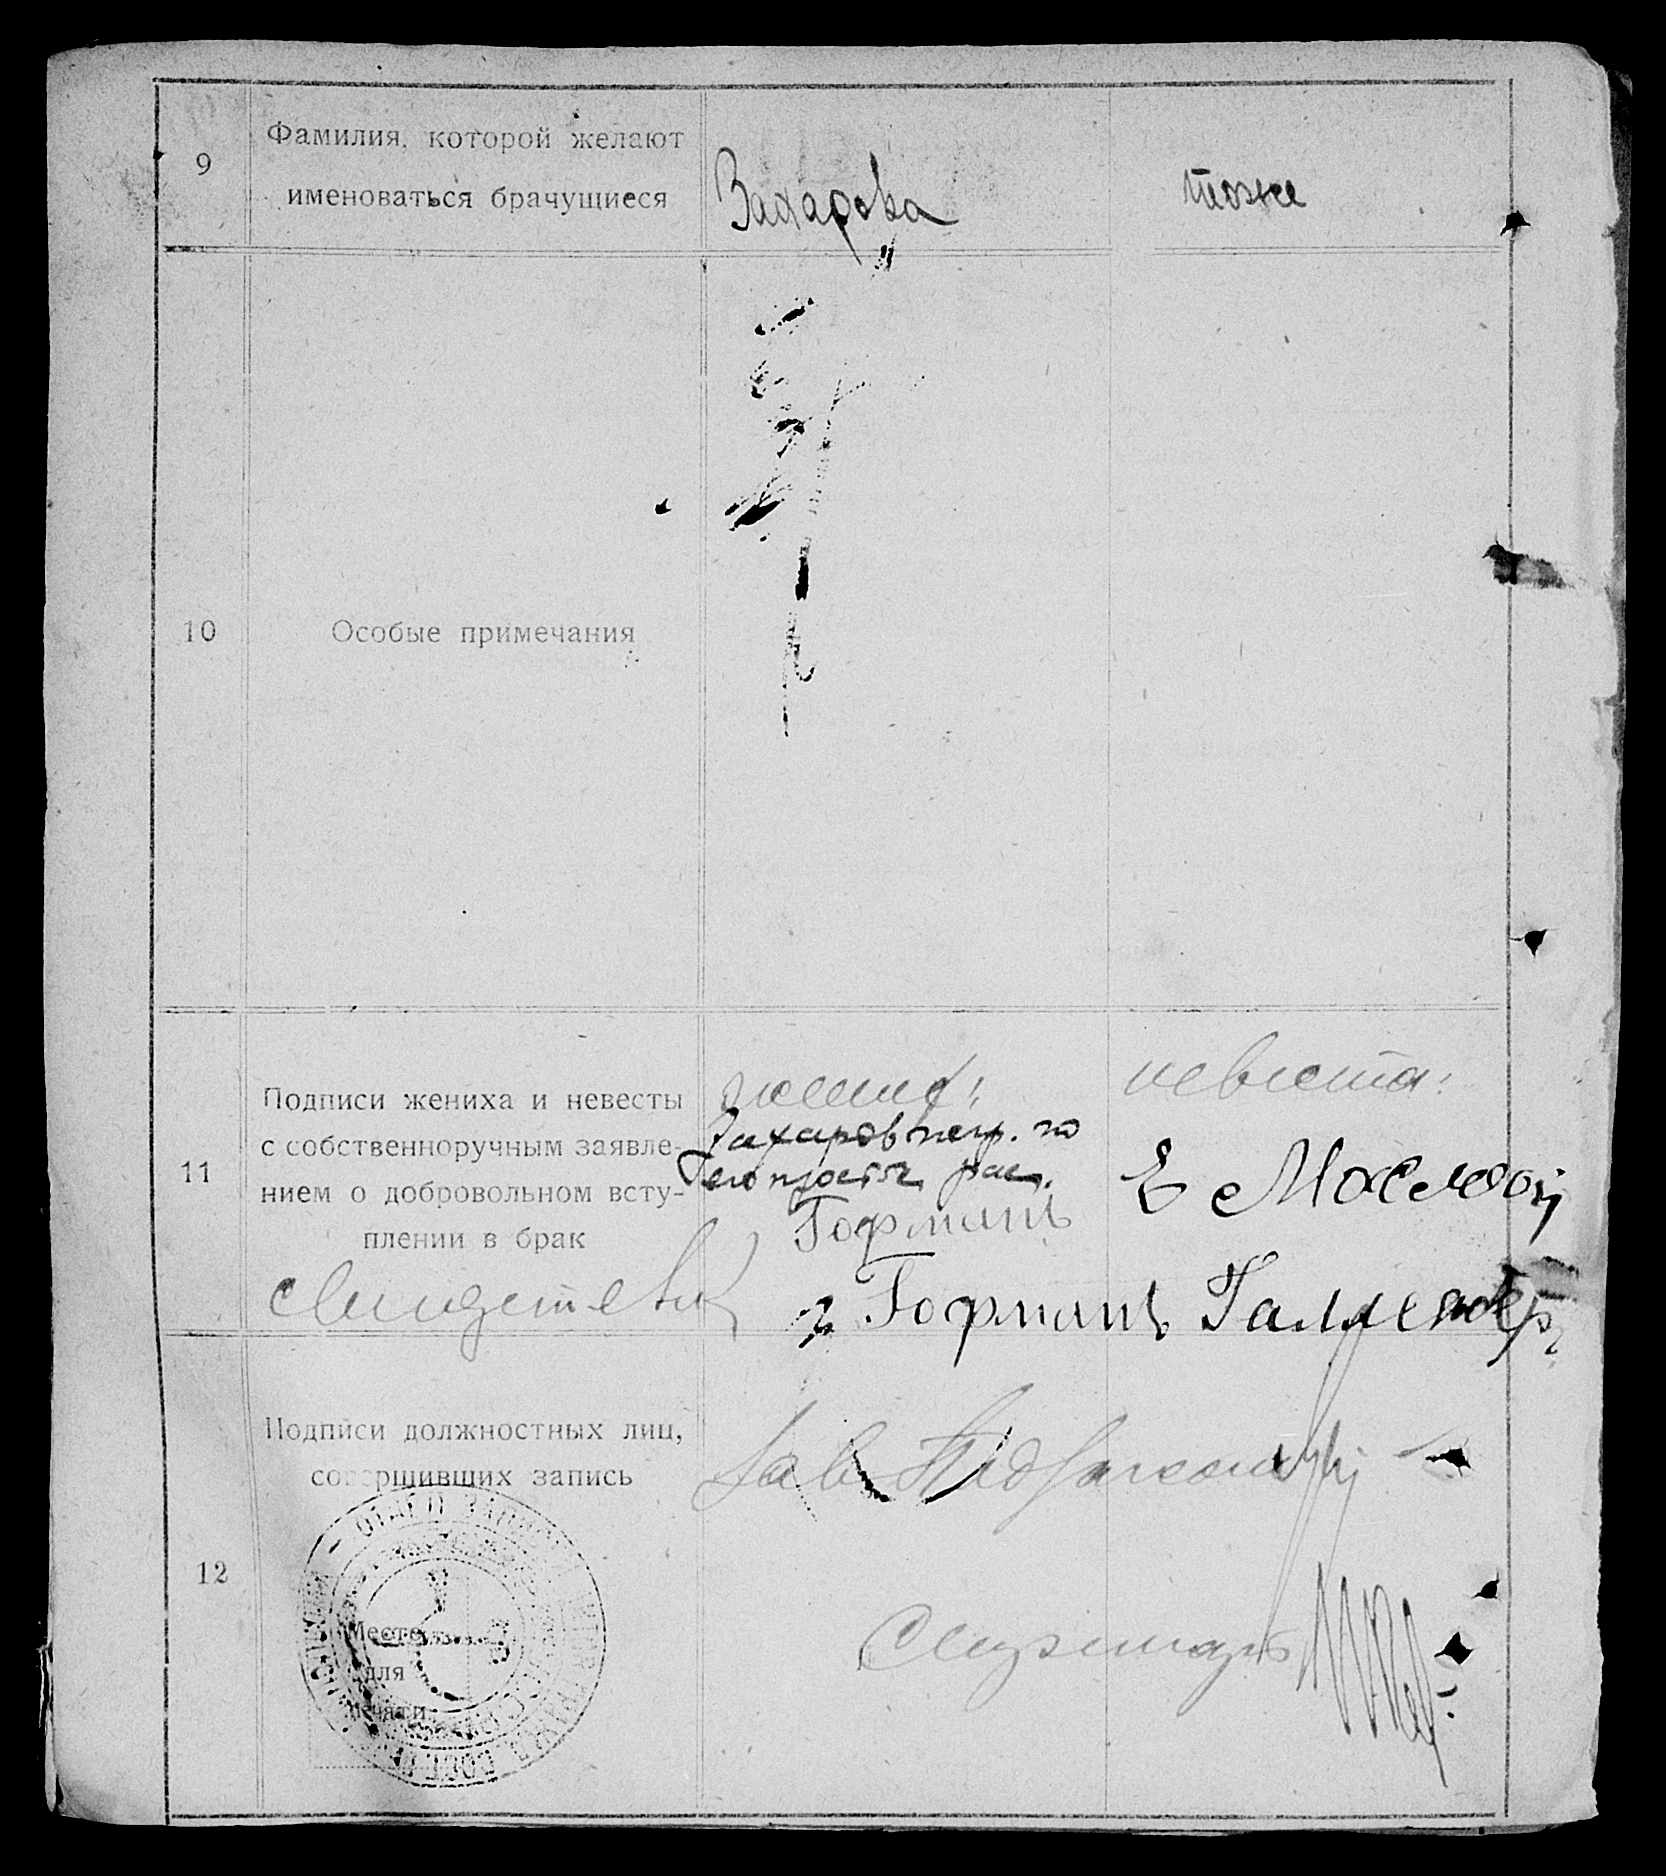 9
Фамилия, которой желают
именоваться брачущиеся
Захарова
тоже
10
Особые примечания
11
Подписи жениха и невесты
с собственноручным заявле-
нием о добровольном всту-
плении в брак
жених:
Захаров негр. по
его просьбе рас.
Гофманъ
невеста:
Свидетели
Гофманъ
12
Подписи должностных лиц,
совершивших запись
Зав.
Место
для
печати